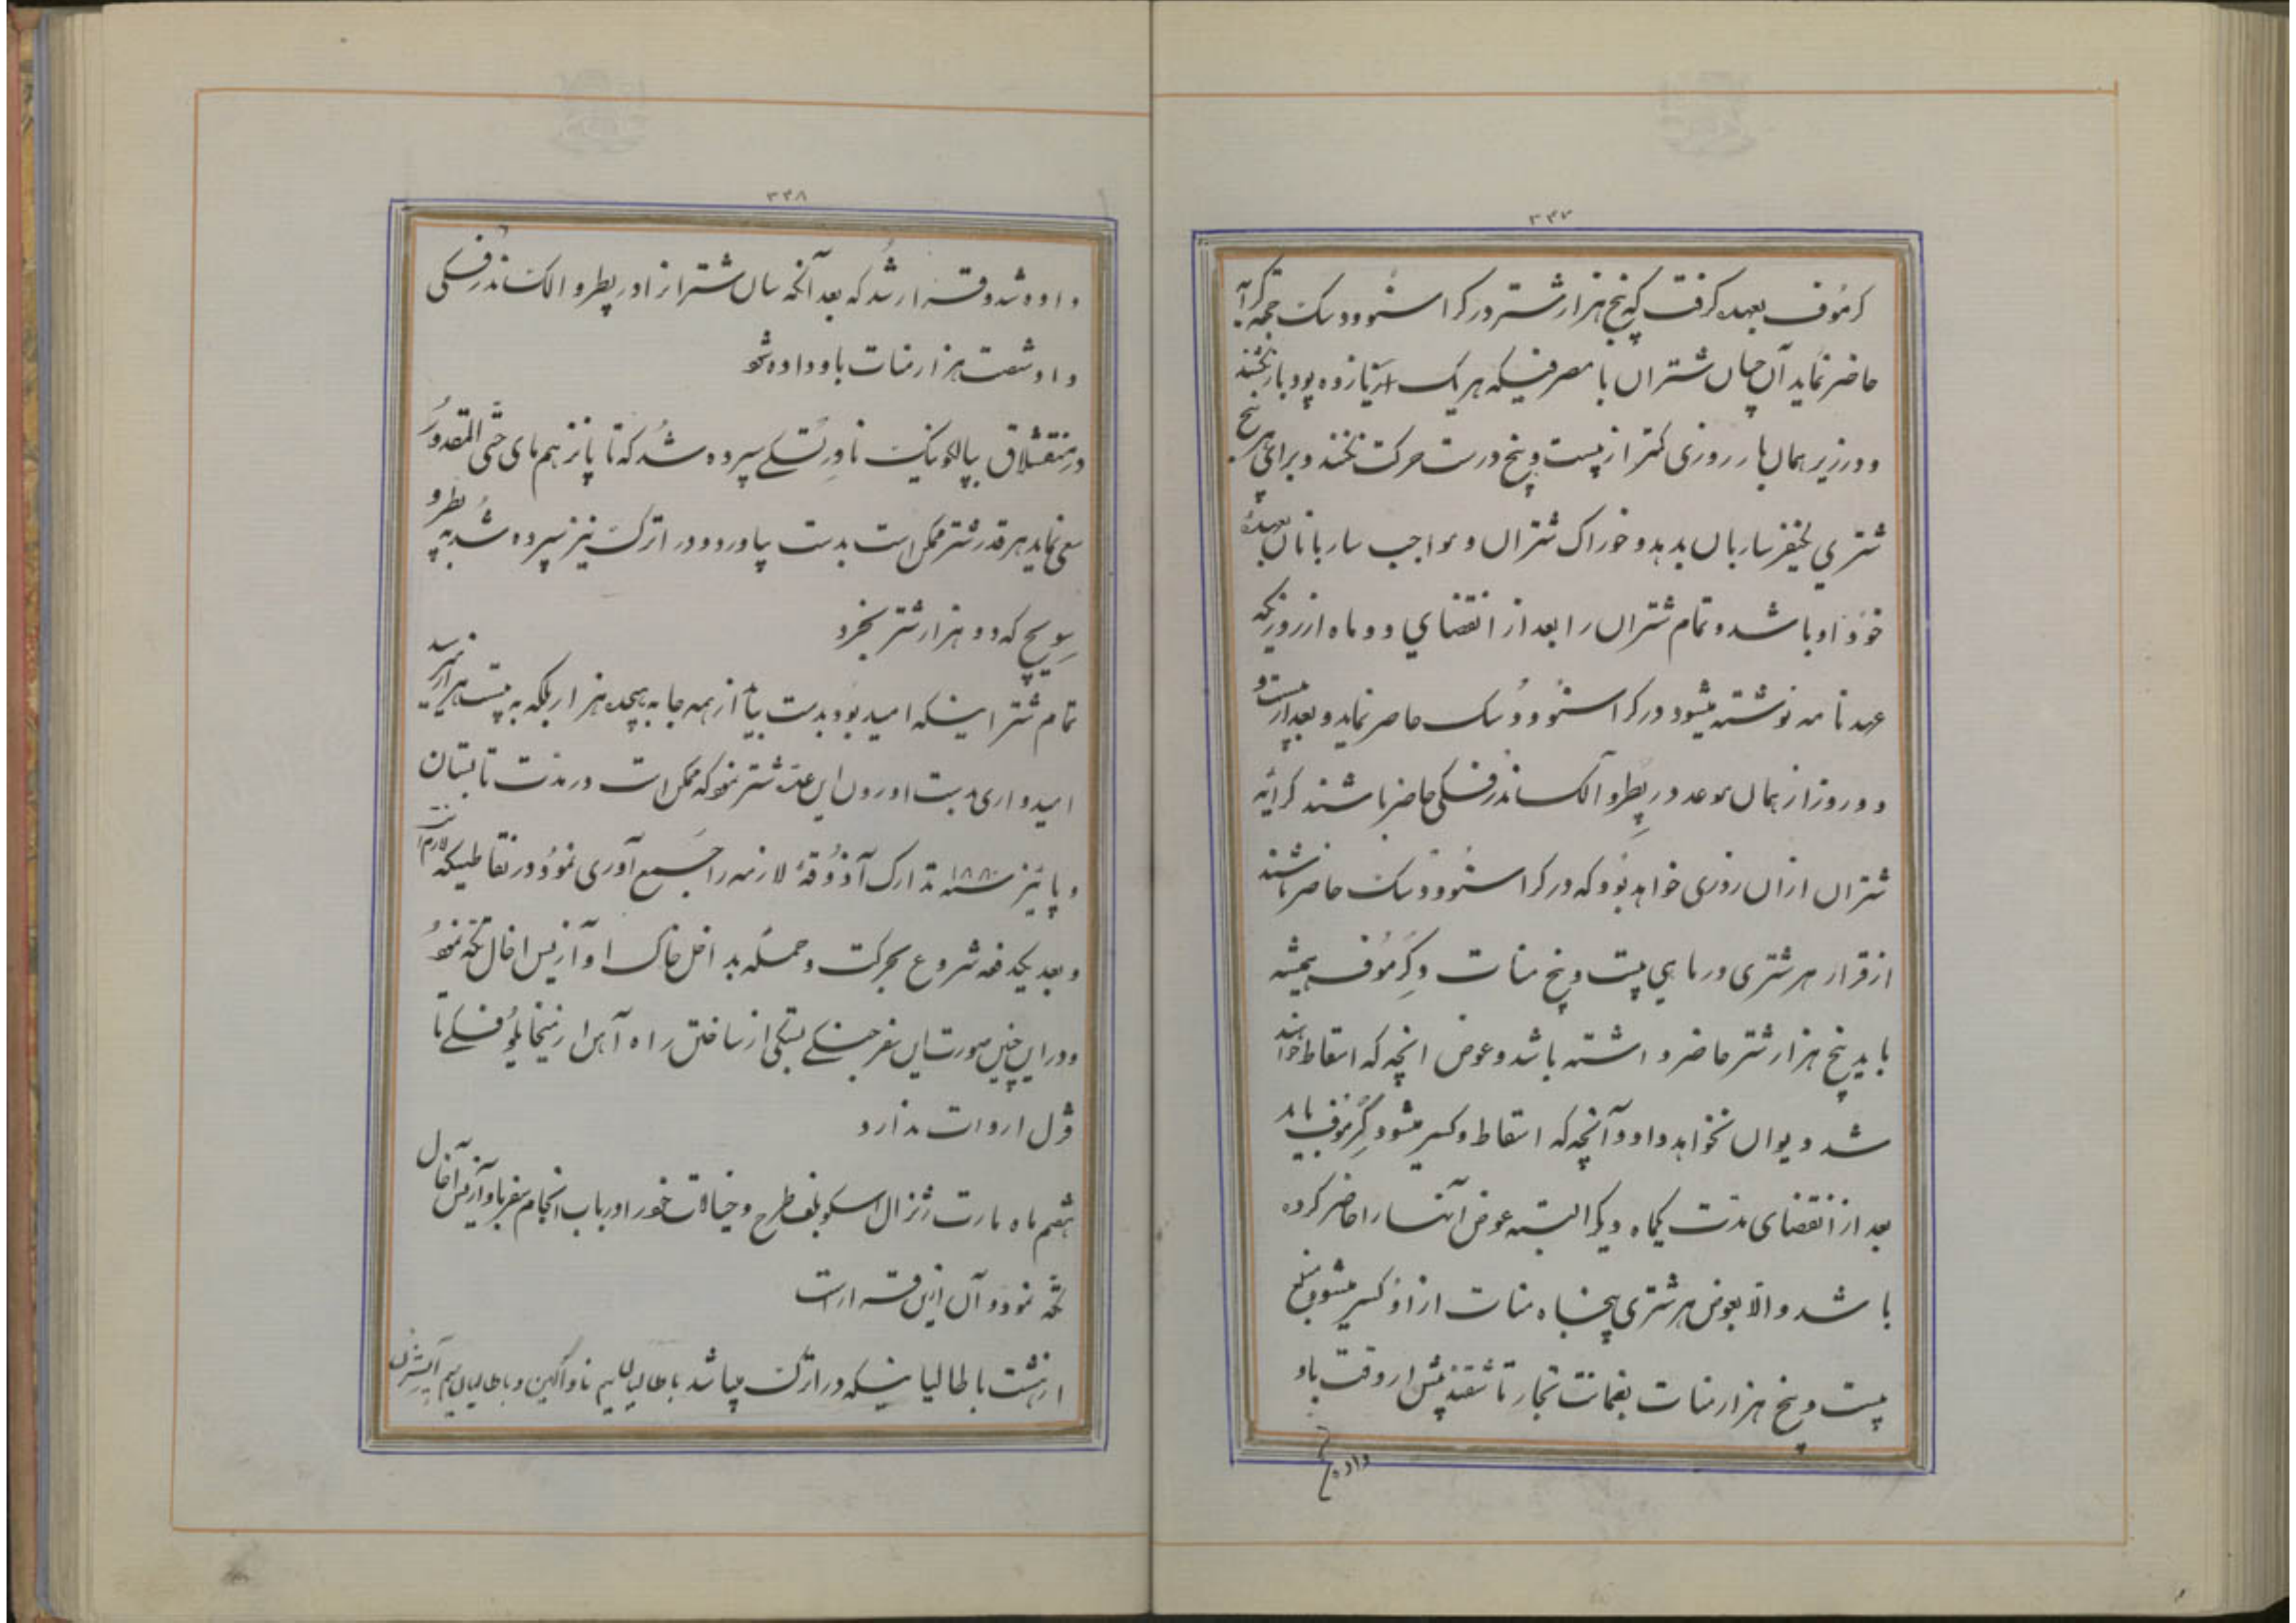 ۳۳۷
گرموف بعهده گرفت که پنج هزار شتر در کراسنوودسک بجهة کرایه
حاضر نماید آن چنان شتران با مصرفیکه هر یک از پانزده پود بار نکشند
و در زیر همان بار روزی کمتر از بیست و پنج ورست حرکت نکنند و برای هر پنج
شتری یکنفر ساربان بدهد و خوراک شتران و مواجب ساربانان بعهده
خود او باشد و تمام شتران را بعد از انقضای دو ماه از روزیکه
عهدنامه نوشته میشود در کراسنوودسک حاضر نماید و بعد از بیست و
دو روز از همان موعد در پطرو آلکساندرفسکی حاضر باشند کرایه
شتران ازان روزی خواهد بود که در کراسنوودسک حاضر باشند
از قرار هر شتری در ماهی بیست و پنج منات و گرموف همیشه
باید پنج هزار شتر حاضر داشته باشد و عوض انچه که اسقاط خواهند
شد دیوان نخواهد داد و آنچه که اسقاط و کسر میشود گرموف باید
بعد از انقضای مدت یکماه دیگر البته عوض آنها را حاضر کرده
باشد و الا بعوض هر شتری پنجاه منات از او کسر میشود مبلغ
بیست و پنج هزار منات بضمانت تجار تاشقند پیش از وقت باو
داده
۳۳۸
داده شد و قرار شد که بعد آنکه سان شتر از او در پطرو الکساندرفسکی
داد شصت هزار منات باو داده شود
در منقشلاق بپالکونیک ناورتسکی سپرده شد که تا پانزدهم مای حتی المقدور
سعی نماید هر قدر شتر ممکن است بدست بیاورد و در اترک نیز سپرده شد به پطرو
سویچ که دو هزار شتر بخرد
تمام شتر اینکه امید بود بدست بیاید از همه جا به هیجده هزار بلکه به بیست هزار میرسید
امیدواری بدست اوردن این عدد شتر نمود که ممکن است در مدت تابستان
و پائیز سنه ۱۸۸۰ تدارک آذوقهٔ لازمه را جمع آوری نمود در نقاطیکه لازم است
و بعد یکدفعه شروع بحرکت و حمله بداخل خاک اوآزیس اخال تکه نمود
و در این چنین صورت این سفر جنگی بستگی از ساختن راه آهن از میخایلوفسکی تا
قزل اروات ندارد
هشتم ماه مارت ژنرال اسکوبلف طرح و خیالات خود را در باب انجام سفر باوآزیس آخال
تکه نمود و آن ازین قرار است
از هشت باطالیا نیکه در اترک میباشد باطالیان یم ناواگین و باطالیان سیم آپشرن